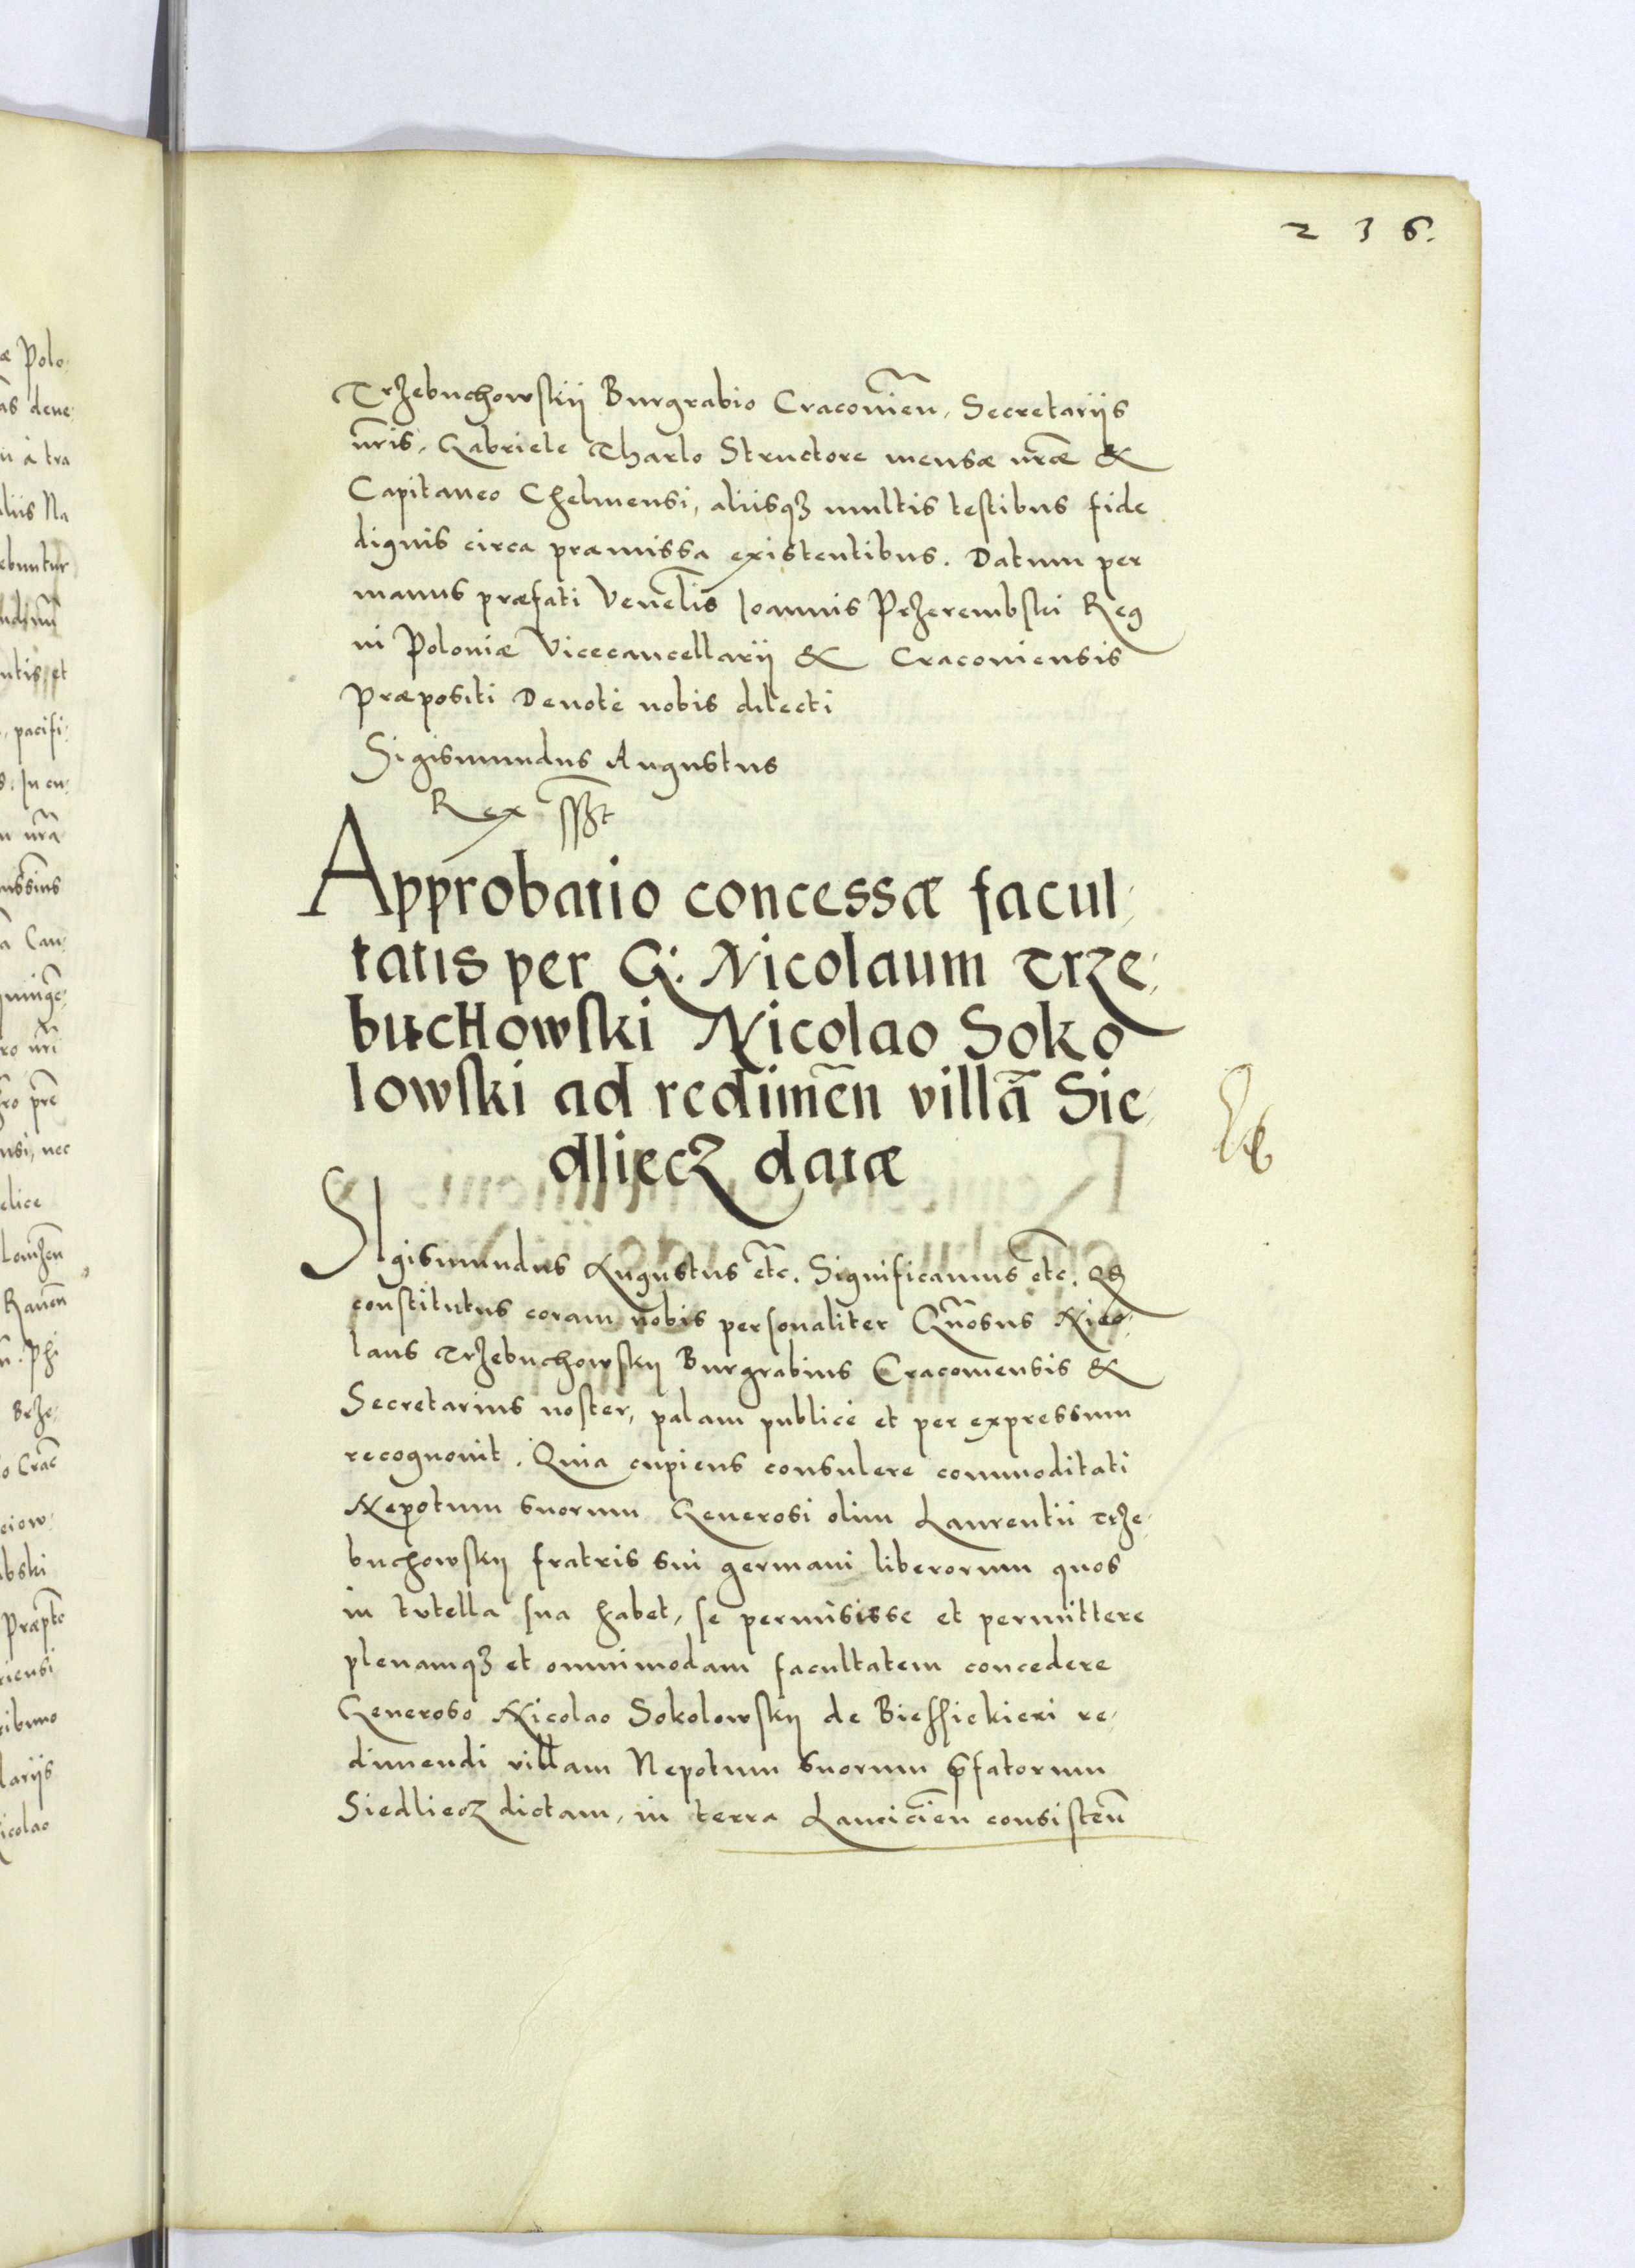 236.
Trzebuchowskij Burgrabio Cracouień, Secretarijs
nr̃is, Gabriele Tharlo Structore mensæ nr̃æ &
Capitaneo Chelmensi, aliisqȝ multis testibus fide
dignis circa præmissa existentibus. Datum per
manus præfati Veneĺis Joannis Przerembski Reg
ni Poloniæ Vicecancellarij & Cracouiensis
Præpositi Deuotè nobis dilecti
Sigismundus Augustus
Rex sszt
Approbatio concessæ facul,
tatis per G: Nicolaum Trze,
buchowski Nicolao Soko
lowski ad redimeñ villã Sie,
dliecz datæ
SIgismundus Augustus etc̃. Significamus etc̃. Qȝ
constitutus coram nobis personaliter Gñosus Nico,
laus Trzebuchowskij Burgrabius Cracouiensis &
Secretarius noster, palam publicè et per expressum
recognouit. Quia cupiens consulere commoditati
Nepotum suorum Generosi olim Laurentii Trze,
buchowskij fratris sui germani liberorum quos
in tutella sua habet, se permisisse et permittere
plenamqȝ et omnimodam facultatem concedere
Generoso Nicolao Sokolowskij de Biessiekieri re,
dimendi villam Nepotum suorum p̃fatorum
Siedliecz dictam, in terra Lancicień consisteñ
æ Polo,
as deue,
ii à tra
aliis Na
ebuntur
ntis et
, pacifi,
s. In cu,
m nr̃a
ussius
a Can,
ro nr̃i
nsi, nec
elice
Lomzeñ
Raueñ
. Phi
Brze,
o Crac̃
ciow,
bski
Præpto
riensi
ribuno
lariis
icolao